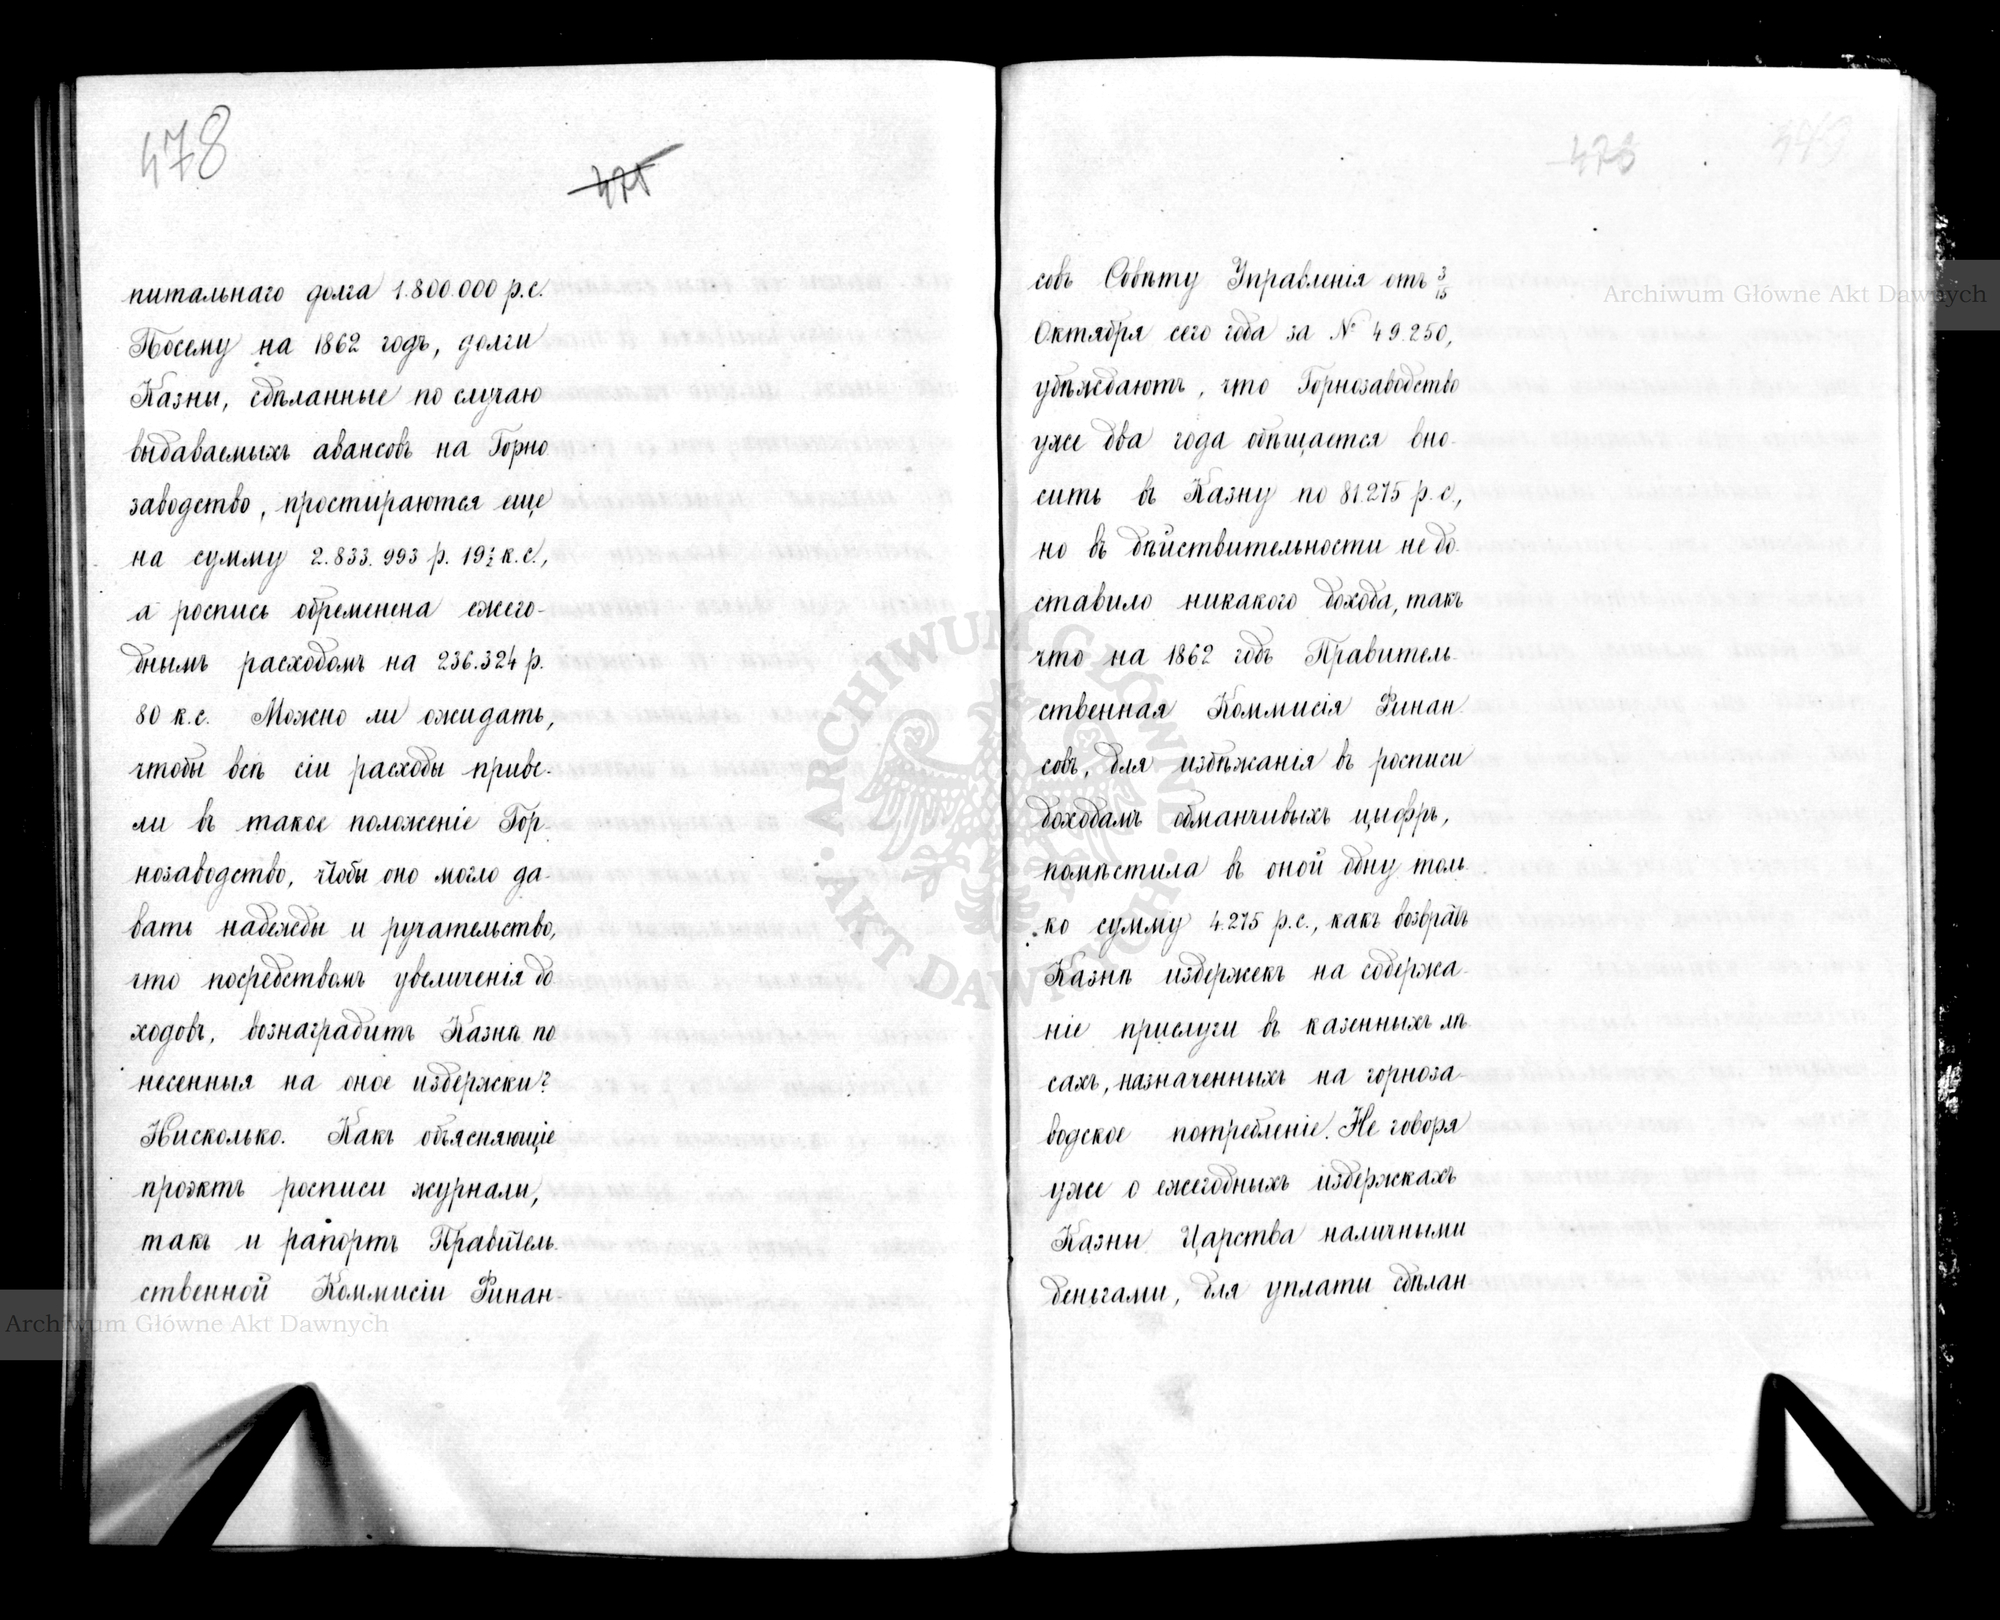 478
475
питальнаго долга 1.800.000 р.с.
Посему на 1862 годъ, долги
Казны, сдѣланные по случаю
выдаваемыхъ авансовъ на Горно
заводство, простираются еще
на сумму 2.833.993 р. 19½ к.с.,
а роспись обременена ежего-
днымъ расходомъ на 236.324 р.
80 к.с. Можно ли ожидать,
чтобы всѣ сіи расходы приве-
ли въ такое положеніе Гор-
нозаводство, чтобы оно могло да-
вать надежды и ручательство,
что посредствомъ увеличенія до
ходовъ, вознаградитъ Казнѣ по
несенныя на оное издержки?
Нисколько. Какъ объясняющіе
проэктъ росписи журналы,
такъ и рапортъ Правитель-
ственной Коммисіи Финан-
совъ Совѣту Управленія отъ 3/15
Октября сего года за № 49.250,
убѣждаютъ, что Горнозаводство
уже два года обѣщается вно-
сить въ Казну по 81.275 р.с.,
но въ дѣйствительности не до-
ставило никакого дохода, такъ
что на 1862 годъ Правитель-
ственная Коммисія Финан-
совъ, для избѣжанія въ росписи
доходамъ обманчивыхъ цифръ,
помѣстила въ оной одну толь-
ко сумму 4.275 р.с., какъ возвратъ
Казнѣ издержекъ на содержа-
ніе прислуги въ казенныхъ лѣ-
сахъ, назначенныхъ на горноза-
водское потребленіе. Не говоря
уже о ежегодныхъ издержкахъ
Казны Царства наличными
деньгами, для уплаты сдѣлан
Archiwum Główne Akt Dawnych
Archiwum Główne Akt Dawnych
ARCHIWUM GŁÓWNE
AKT DAWNYCH